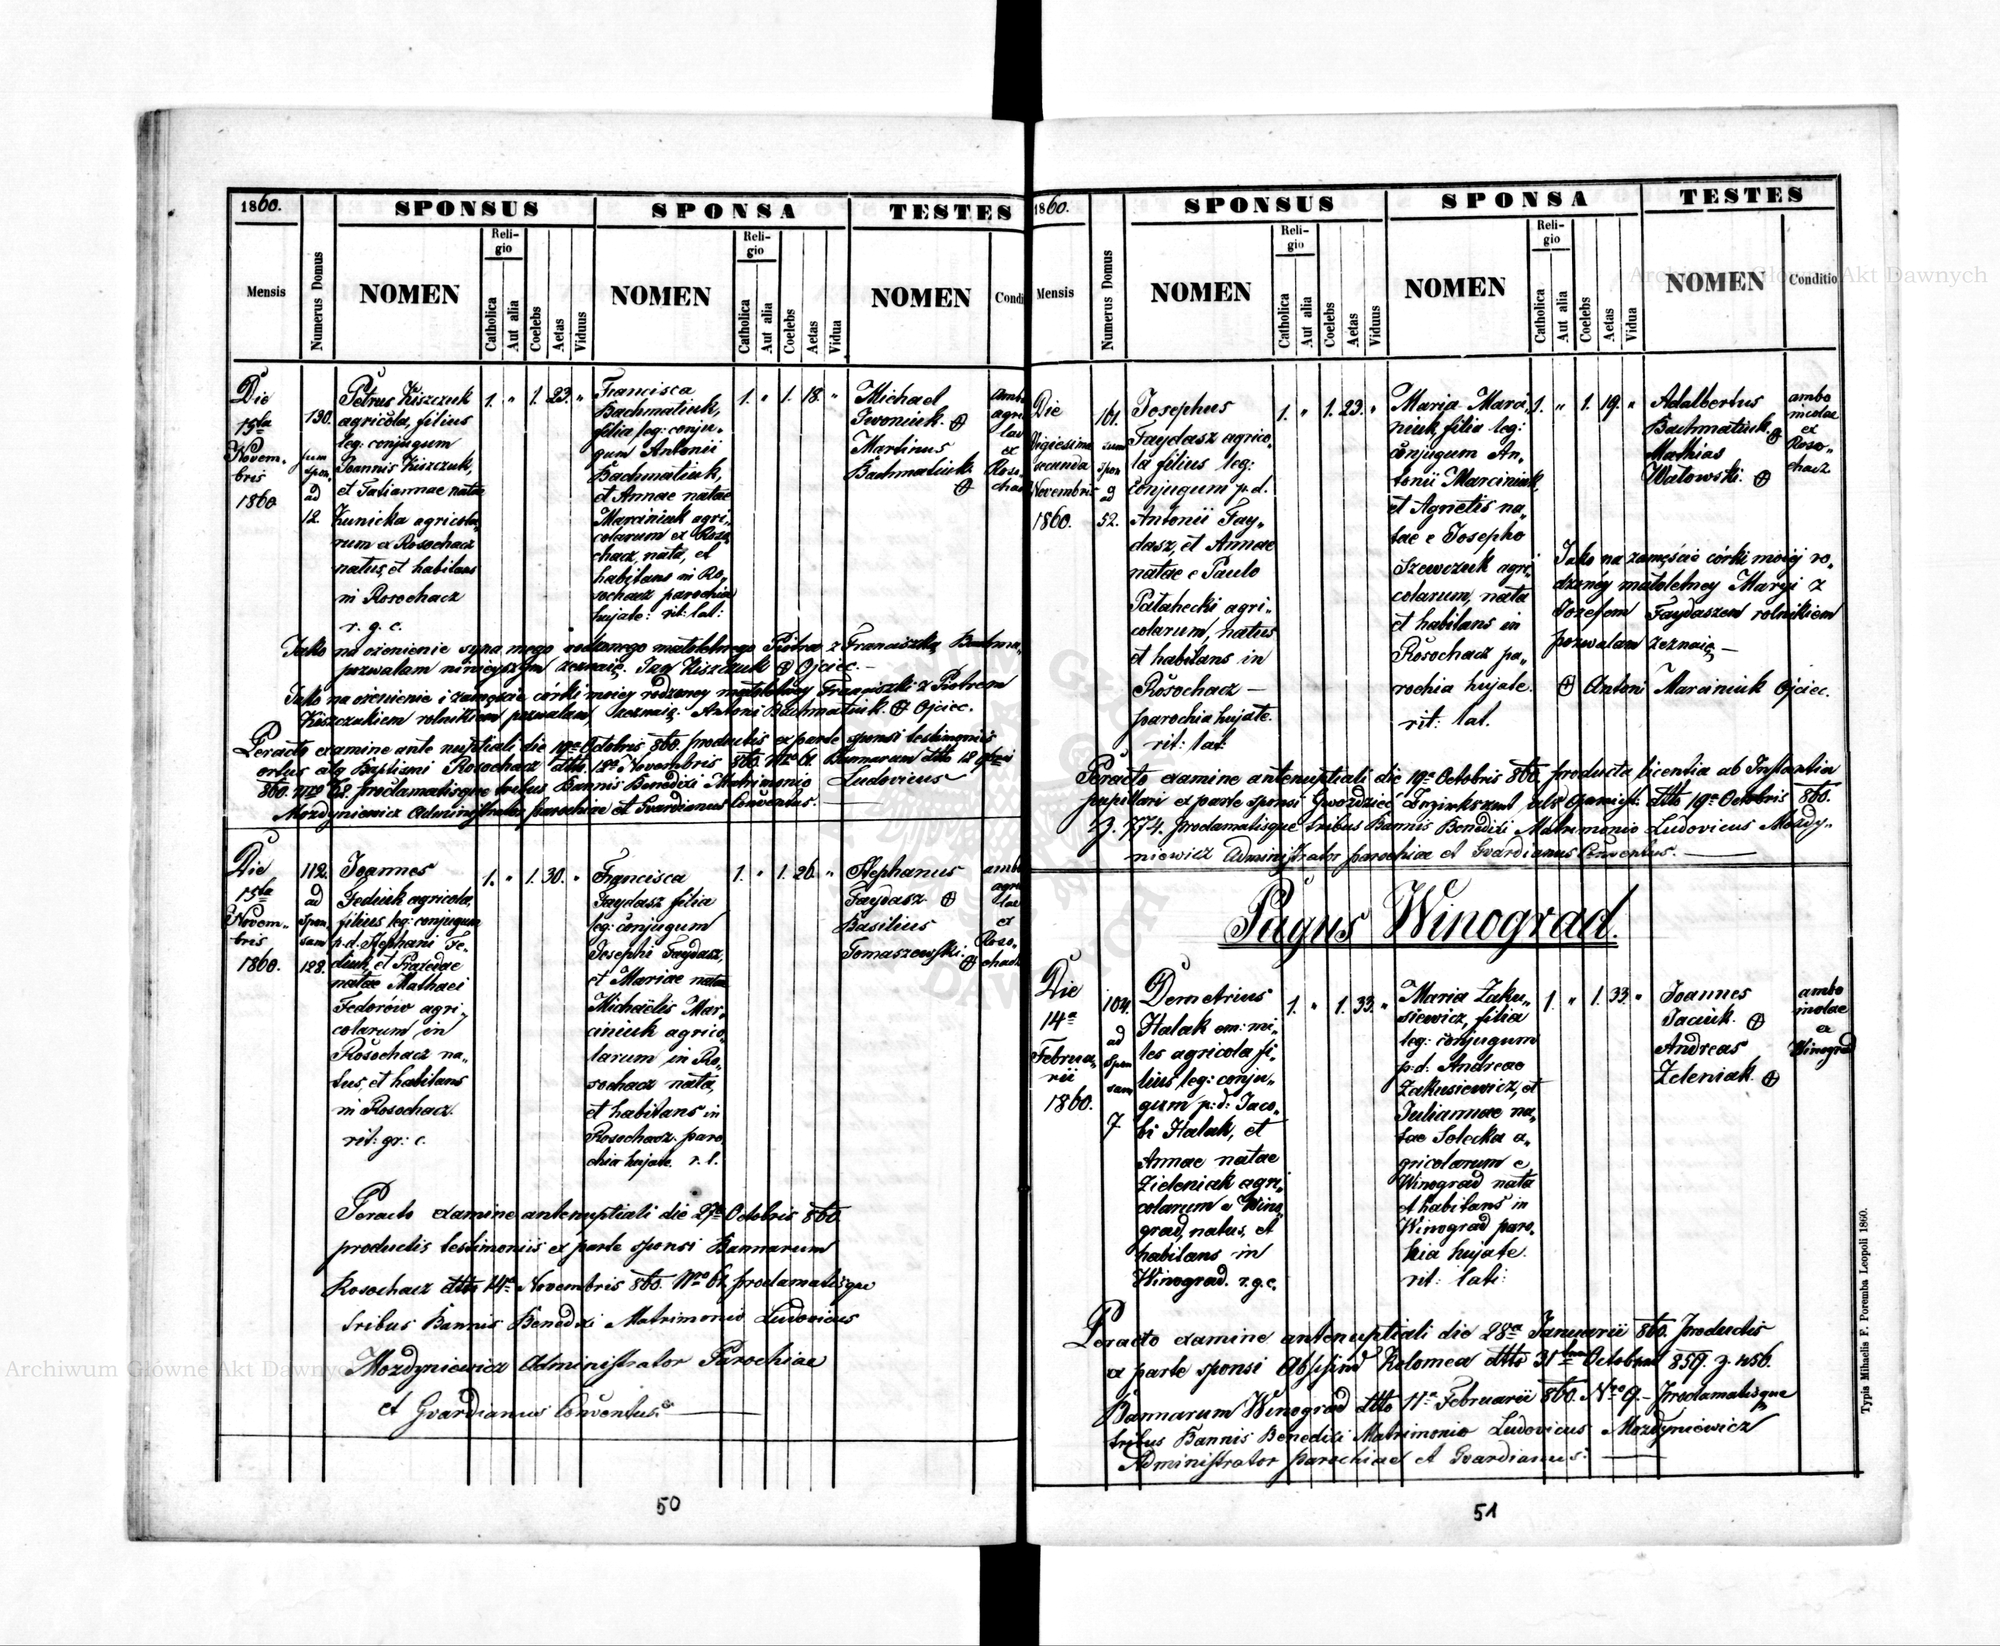 1860.
SPONSUS
SPONSA
TESTES
Mensis
Numerus Domus
NOMEN
Religio
Catholica
Aut alia
Coelebs
Aetas
Viduus
NOMEN
Religio
Catholica
Aut alia
Coelebs
Aetas
Vidua
NOMEN
Condi
Die
15ta
Novem-
bris
1860
130.
sum
spon.
ad
12.
Petrus Kiszczuk
agricola, filius
leg: conjugum
Joannis Kiszczuk,
et Tatiannae natae
Kunicka agricola,
rum ex Rosochacz
natus, et habitans
in Rosochacz
r. g. c.
1. " 1. 23. "
Francisca
Bachmatiuk,
filia leg: conju-
gum Antonii
Bachmatiuk,
et Annae natae
Marciniuk agri-
colarum ex Roso
chacz, nata, et
habitans in Ro,,
sochacz parochia
hujate: rit: lat:
1. " 1. 18. "
Michael
Iwoniuk. ⊕
Martinus
Bachmatiuk.
⊕
ambo
agri
lae
ex
Roso.
chac
Jako na ożenienie syna mego rodzonego małoletnego Piotra z Franciszką Bachma,,
pozwalam niniejszym zeznaię. Jan Kiszczuk ⊕ Ojciec. —
Jako na ożenienie i zamęście córki moiej rodzoney małoletniey Franciszki z Piotrem
Kiszczukiem rolnikiem pozwalam zeznaię. Antoni Bachmatiuk. ⊕ Ojciec.
Peracto examine ante nuptiali die 19a Octobris 860. productis ex parte sponsi testimoniis
ortus atq Baptismi Rosochacz dtto. 12a Novembris 860. Nro 61 Bannarum dtto 12
860. Nro 62. proclamatisque tribus Bannis Benedixi Matrimonio Ludovicus
Mozdyniewicz Administrator parochiae et Gvardianus Conventus. —
Die
15ta
Novem-
bris
1860.
112.
ad
Spon,
sam
128.
Joannes
Fediuk agricola,
filius leg: conjugum
p. d. Stephani Fe-
diuk, et Praxedae
natae Mathaei
Fedorów agri-
colarum in
Rosochacz na,,
tus, et habitans
in Rosochacz.
rit: gr: c.
1. " 1. 30. "
Francisca
Faydasz filia
leg: conjugum
Josephi Faydasz,
et Mariae natae
Michaëlis Mar-
ciniuk agrico
larum in Ro,,
sochacz nata,
et habitans in
Rosochacz paro
chia hujate. r. l.
1. " 1. 26. "
Stephanus
Faydasz. ⊕
Basilius
Tomaszewski. ⊕
ambo
agri
lae
ex
Roso.
chacz
Peracto examine antenuptiali die 27a Octobris 860.
productis testimoniis ex parte sponsi Bannarum
Rosochacz dtto 14a Novembris 860. Nro 67. proclamatisque
tribus Bannis Benedixi Matrimonio Ludovicus
Mozdyniewicz Administrator Parochiae
et Gvardianus Conventus. —
50
1860.
SPONSUS
SPONSA
TESTES
Mensis
Numerus Domus
NOMEN
Religio
Catholica
Aut alia
Coelebs
Aetas
Viduus
NOMEN
Religio
Catholica
Aut alia
Coelebs
Aetas
Vidua
NOMEN
Conditio
Die
Vigiesima
secunda
Novembris
1860.
161.
sum
spon
ad
52.
Josephus
Faydasz agrico,
la filius leg:
conjugum p. d.
Antonii Fay-
dasz, et Annae
natae e Paulo
Patahecki agri-
colarum, natus
et habitans in
Rosochacz —
parochia hujate.
rit: lat:
1. " 1. 23. "
Maria Marci,
niuk, filia leg:
conjugum An-
tonii Marciniuk,
et Agnetis na,
tae e Josepho
Szewczuk agri,
colarum, nata
et habitans in
Rosochacz pa,
rochia hujate.
rit: lat.
1. " 1. 19. "
Adalbertus
Bachmatiuk. ⊕
Mathias
Watowski. ⊕
ambo
incolae
ex
Roso-
chacz
Jako na zamęście córki moiej ro-
dzoney małoletney Maryi z
Jozefem Faydaszem rolnikiem
pozwalam zeznaię —
⊕ Antoni Marciniuk Ojciec.
Peracto examine antenuptiali die 19a Octobris 860. producta licentia ab Instantia
pupillari ex parte sponsi Gwoździec dtto 19a Octobris 860.
774. proclamatisque tribus Bannis Benedixi Matrimonio Ludovicus Mozdy-
niewicz Administrator parochiae et Gvardianus Conventus. —
Pagus Winograd.
Die
14a
Februa,
rii
1860.
104.
ad
Spon
sam
7
Demetrius
Halak em: mi,
les agricola fi,
lius leg: conju,
gum p: d: Jaco,
bi Halak, et
Annae natae
Zieleniak agri,
colarum e Wino,
grad, natus, et
habitans in
Winograd. r. g. c.
1. " 1. 33. "
Maria Zaku,
siewicz, filia
leg: conjugum
p: d: Andreae
Zakusiewicz, et
Juliannae na,
tae Solecka a,
gricolarum e
Winograd nata
et habitans in
Winograd paro,
chia hujate.
rit: lati:
1. " 1. 33. "
Joannes
Jaciuk. ⊕
Andreas
Zeleniak. ⊕
ambo
incolae
ex
Winograd
Peracto examine antenuptiali die 28a Januarii 860. Productis
ex parte sponsi Abschied Kolomea dtto 31 Octobris 859. z. 456.
Bannarum Winograd dtto 11a Februarii 860. Nro 9. — Proclamatisque
tribus Bannis Benedixi Matrimonio Ludovicus Mozdyniewicz
Administrator parochiae et Gvardianus. —
51
Typis Mihaelis F. Poremba Leopoli 1860.
Archiwum Główne Akt Dawnych
Archiwum Główne Akt Dawnych